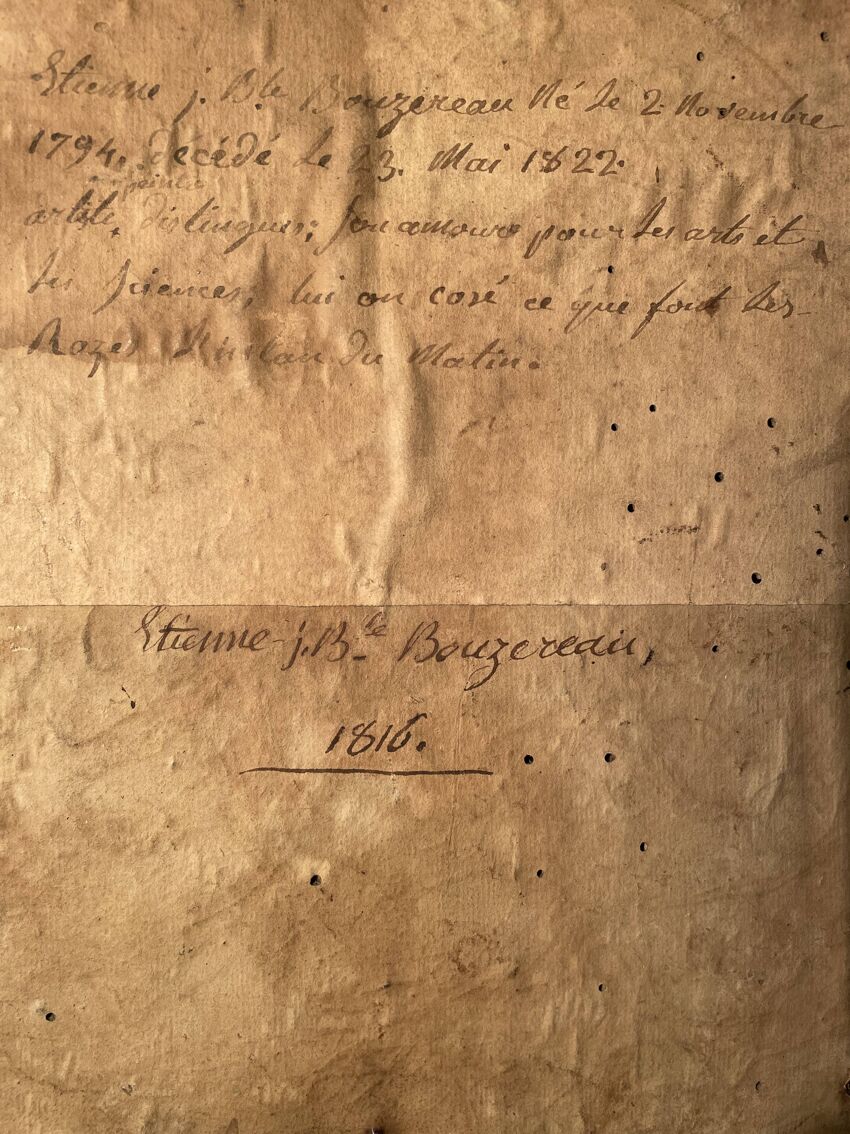 Etienne j. Bte Bouzereau Né le 2. Novembre
1794. décédé le 23. Mai 1822.
peintre
artiste, distingués; son amour pour les arts et
les sciences, lui on cosé ce que font les
Rozes du Matin.
Etienne j. Bte Bouzereau,
1816.